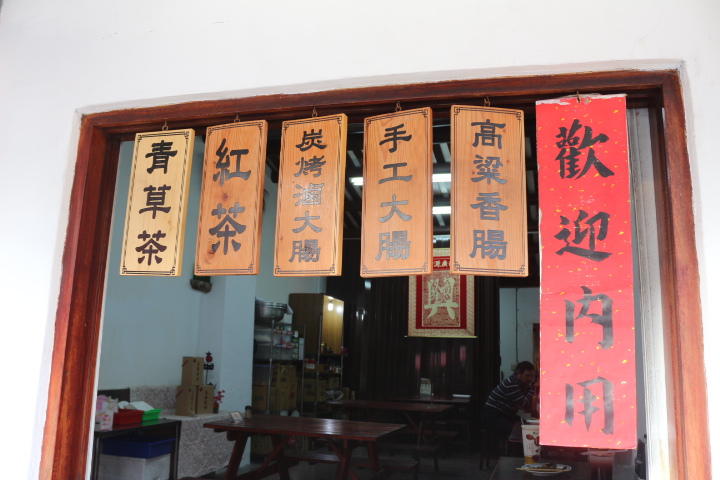 青草茶
紅茶
炭烤滷大腸
手工大腸
高粱香腸
歡迎內用
興